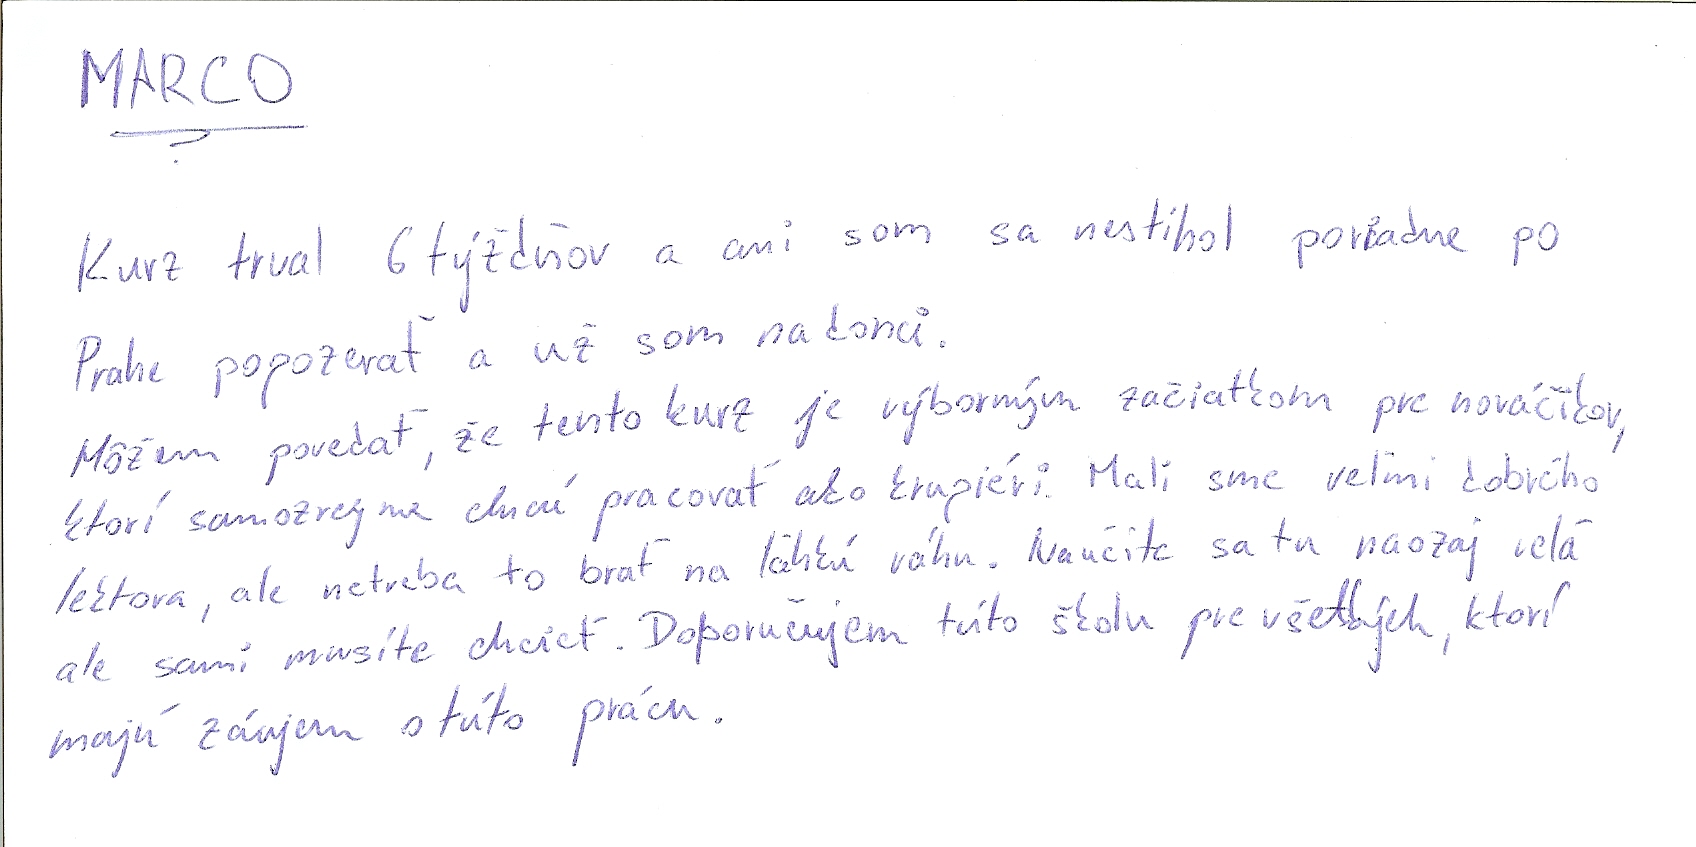 MARCO
Kurz trval 6 týždňov a ani som sa nestihol poriadne po
Prahe popozerať a už som na konci.
Môžem povedať, že tento kurz je výborným začiatkom pre nováčikov,
ktorí samozrejme chcú pracovať ako krupiéri. Mali sme veľmi dobrého
lektora, ale netreba to brať na ľahkú váhu. Naučíte sa tu naozaj veľa
ale sami musíte chcieť. Doporučujem túto školu pre všetkých, ktorí
majú záujem o túto prácu.